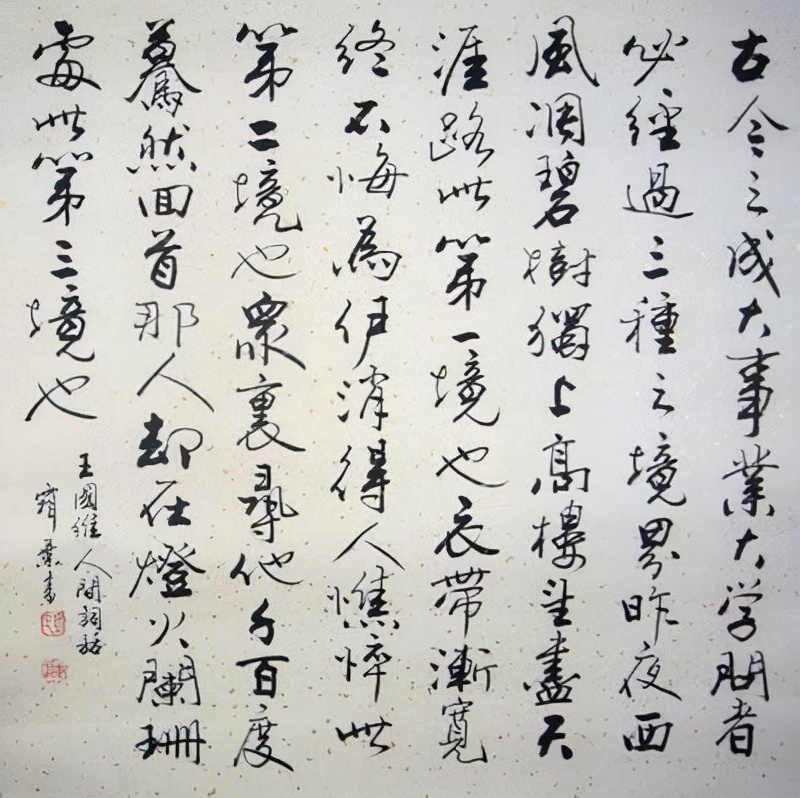 古今之成大事業大学問者
必經過三種之境界昨夜西
風凋碧樹獨上高樓望盡天
涯路此第一境也衣帶漸寬
終不悔為伊消得人憔悴此
第二境也眾裏尋他千百度
驀然回首那人却在燈火闌珊
處此第三境也
王國維人間詞話
書